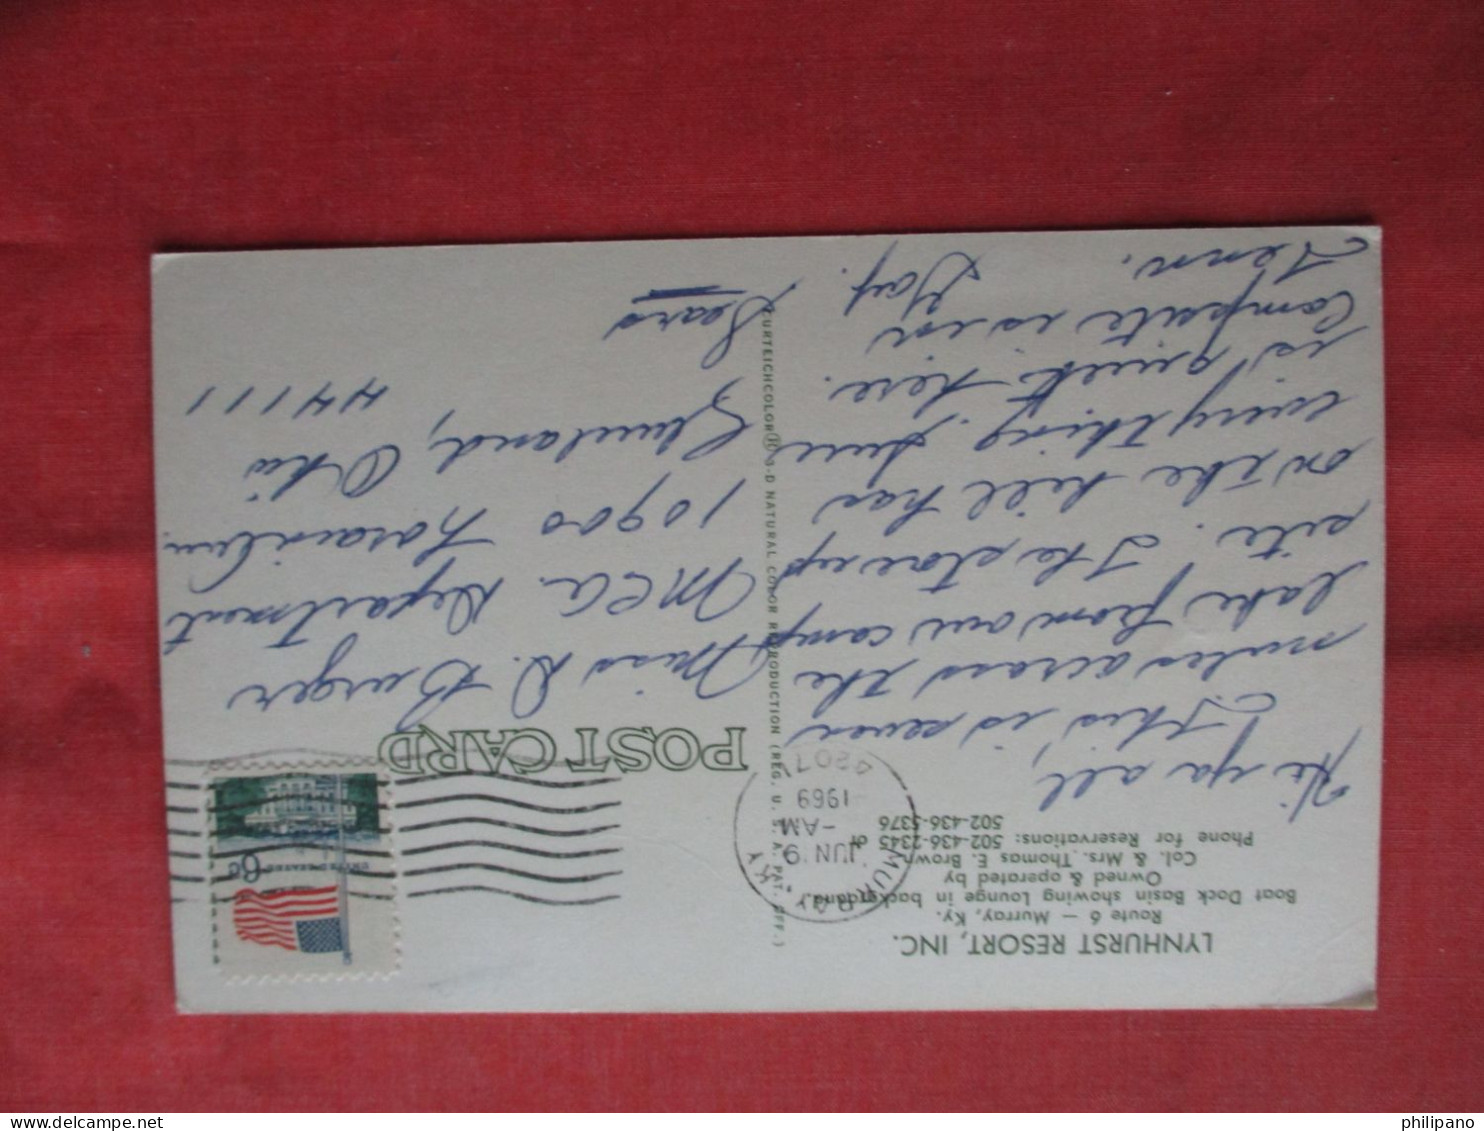 LYNHURST RESORT, INC.
Route 6 — Murray, Ky.
Boat Dock Basin showing Lounge in background.
Owned & operated by
Col. & Mrs. Thomas E. Brown
Phone for Reservations: 502-436-2345 or
502-436-5376
Hi ya all,
This is seven
miles across the
lake from our camp
site. The store up
on the hill has
everything. Sure
is quiet here.
Campsite is in
Tenn.
Gay.
CURTEICHCOLOR® 3-D NATURAL COLOR REPRODUCTION (REG. U. S. A. PAT. OFF.)
MURRAY, KY.
JUN 9
-AM
1969
42071
6c
UNITED STATES
POST CARD
Miss D. Burger
MCA. Department
10900 Lorain Ave.
Cleveland, Ohio
44111
Sears
philipano